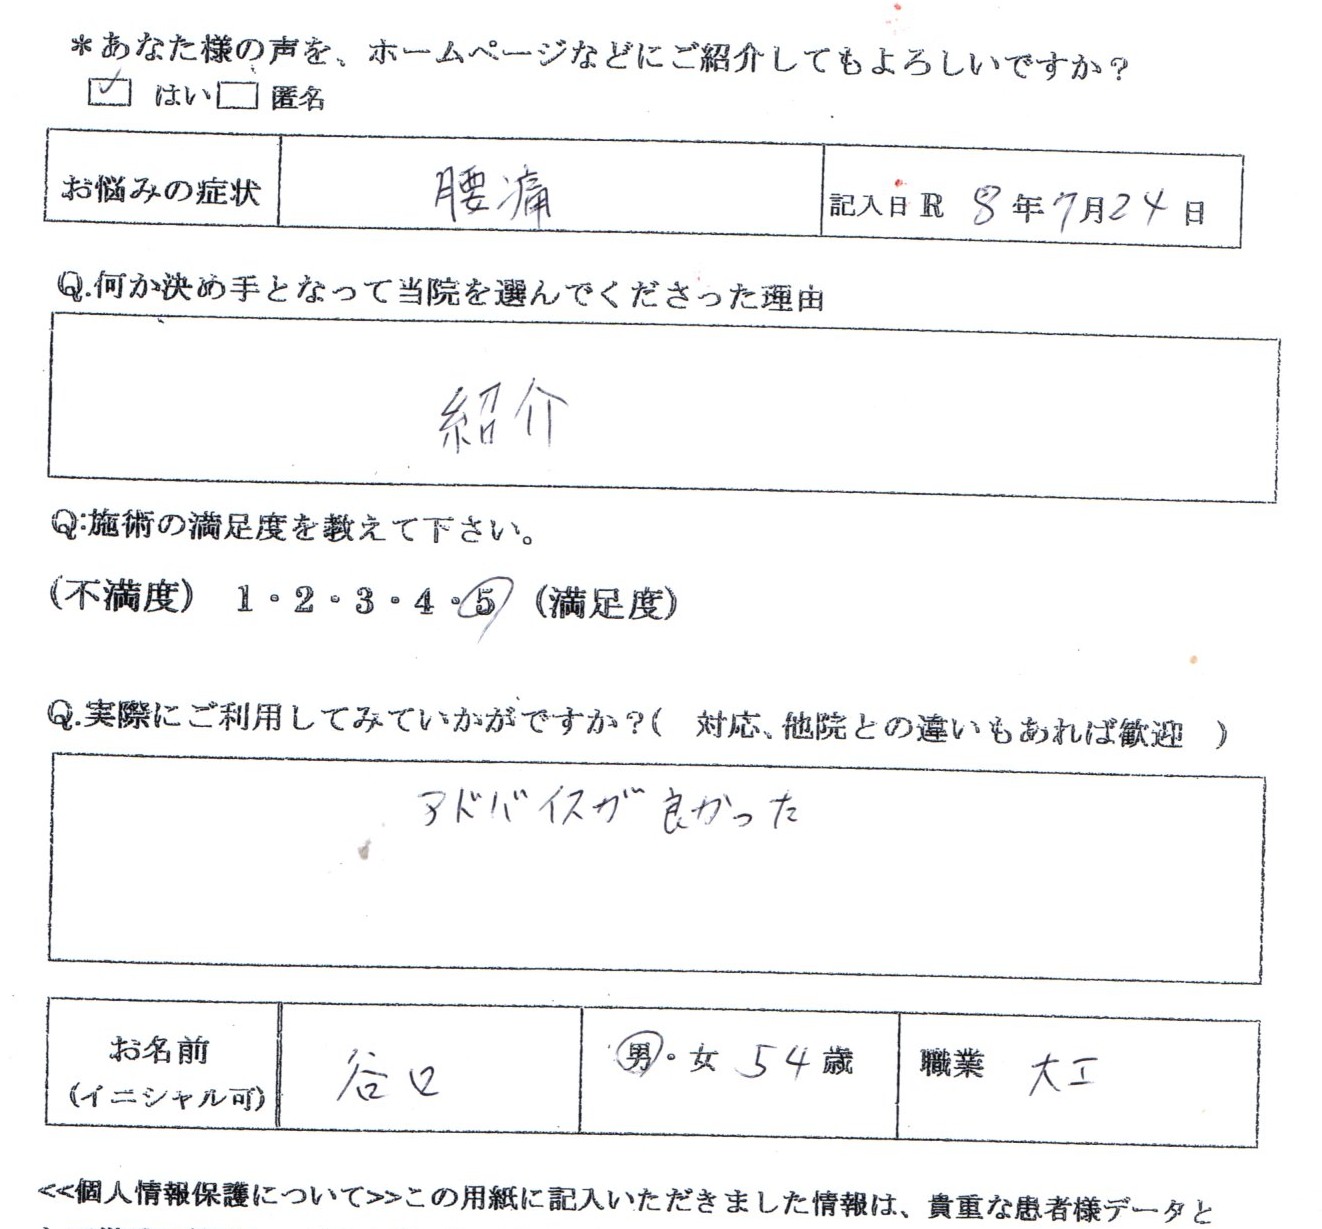 ＊あなた様の声を、ホームページなどにご紹介してもよろしいですか？
☑ はい □ 匿名
お悩みの症状 腰痛 記入日 R 8年7月24日
Q.何か決め手となって当院を選んでくださった理由
紹介
Q:施術の満足度を教えて下さい。
(不満度) 1・2・3・4・5 (満足度)
Q.実際にご利用してみていかがですか？( 対応、他院との違いもあれば歓迎 )
アドバイスが良かった
お名前 谷口 男・女 54歳 職業 大工
(イニシャル可)
<<個人情報保護について>>この用紙に記入いただきました情報は、貴重な患者様データと